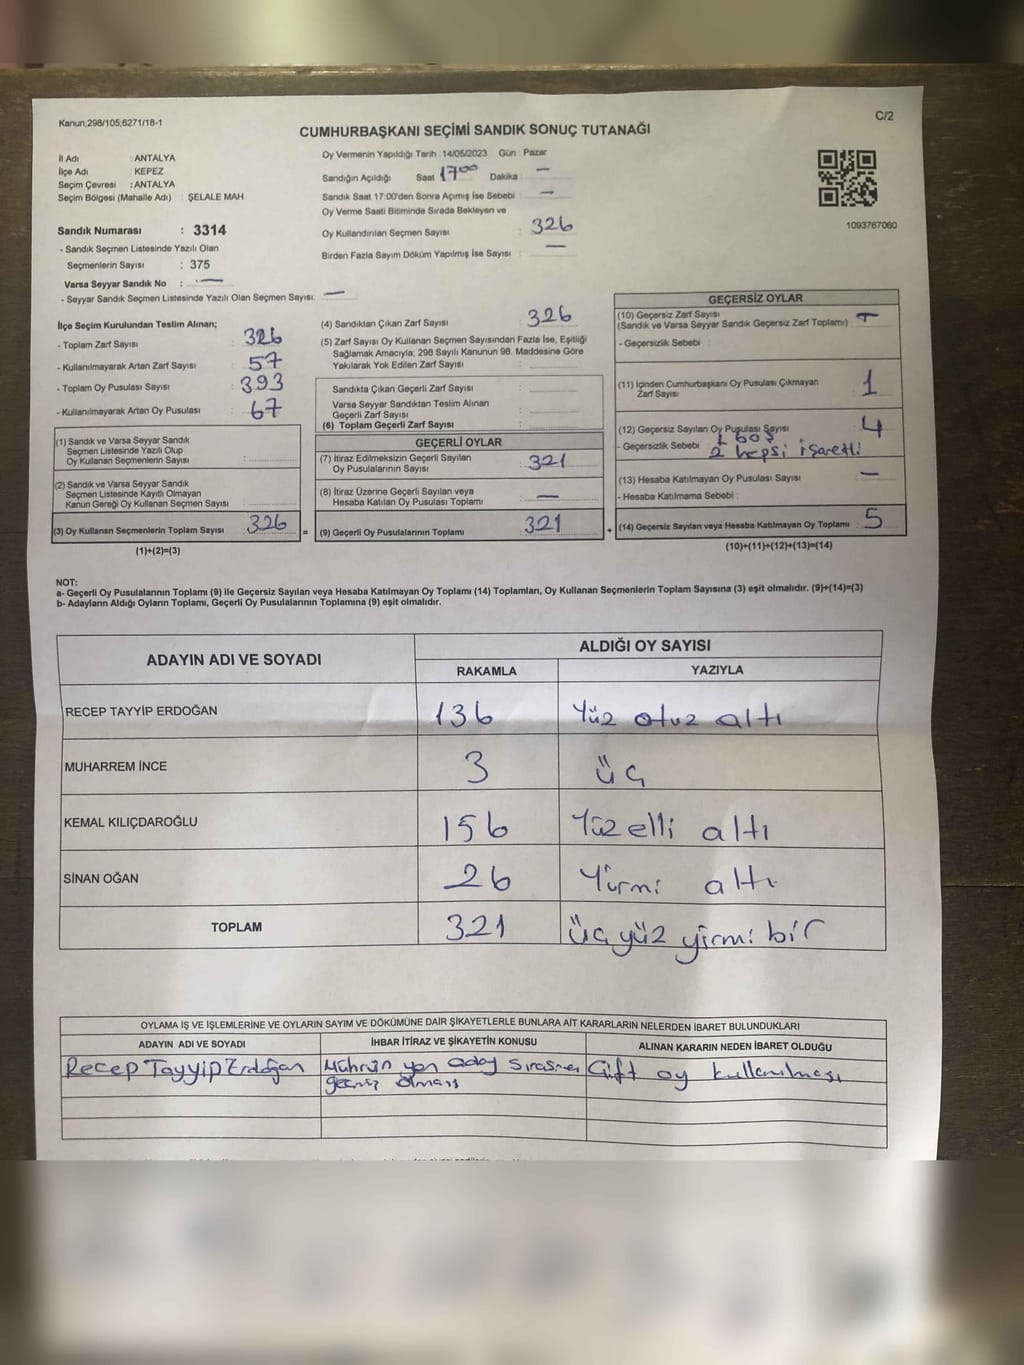 Kanun,298/105,6271/18-1
C/2
CUMHURBAŞKANI SEÇİMİ SANDIK SONUÇ TUTANAĞI
İl Adı : ANTALYA
İlçe Adı : KEPEZ
Seçim Çevresi : ANTALYA
Seçim Bölgesi (Mahalle Adı) ŞELALE MAH
Sandık Numarası : 3314
- Sandık Seçmen Listesinde Yazılı Olan
Seçmenlerin Sayısı : 375
Varsa Seyyar Sandık No : —
- Seyyar Sandık Seçmen Listesinde Yazılı Olan Seçmen Sayısı: —
Oy Vermenin Yapıldığı Tarih : 14/05/2023 Gün : Pazar
Sandığın Açıldığı Saat 1700 Dakika : —
Sandık Saat 17:00'den Sonra Açımış İse Sebebi : —
Oy Verme Saati Bitiminde Sırada Bekleyen ve
Oy Kullandırılan Seçmen Sayısı : 326
Birden Fazla Sayım Döküm Yapılmış İse Sayısı : —
1093767060
İlçe Seçim Kurulundan Teslim Alınan;
- Toplam Zarf Sayısı : 326
- Kullanılmayarak Artan Zarf Sayısı : 57
- Toplam Oy Pusulası Sayısı : 393
- Kullanılmayarak Artan Oy Pusulası : 67
(1) Sandık ve Varsa Seyyar Sandık
Seçmen Listesinde Yazılı Olup
Oy Kullanan Seçmenlerin Sayısı :
(2) Sandık ve Varsa Seyyar Sandık
Seçmen Listesinde Kayıtlı Olmayan
Kanun Gereği Oy Kullanan Seçmen Sayısı :
(3) Oy Kullanan Seçmenlerin Toplam Sayısı : 326 =
(1)+(2)=(3)
(4) Sandıktan Çıkan Zarf Sayısı : 326
(5) Zarf Sayısı Oy Kullanan Seçmen Sayısından Fazla İse, Eşitliği
Sağlamak Amacıyla; 298 Sayılı Kanunun 98. Maddesine Göre
Yakılarak Yok Edilen Zarf Sayısı :
Sandıkta Çıkan Geçerli Zarf Sayısı :
Varsa Seyyar Sandıktan Teslim Alınan
Geçerli Zarf Sayısı :
(6) Toplam Geçerli Zarf Sayısı :
GEÇERLİ OYLAR
(7) İtiraz Edilmeksizin Geçerli Sayılan
Oy Pusulalarının Sayısı : 321
(8) İtiraz Üzerine Geçerli Sayılan veya
Hesaba Katılan Oy Pusulası Toplamı : —
(9) Geçerli Oy Pusulalarının Toplamı : 321 +
GEÇERSİZ OYLAR
(10) Geçersiz Zarf Sayısı
(Sandık ve Varsa Seyyar Sandık Geçersiz Zarf Toplamı) : —
- Geçersizlik Sebebi :
(11) İçinden Cumhurbaşkanı Oy Pusulası Çıkmayan
Zarf Sayısı : 1
(12) Geçersiz Sayılan Oy Pusulası Sayısı : 4
- Geçersizlik Sebebi : boş
2 hepsi işaretli
(13) Hesaba Katılmayan Oy Pusulası Sayısı : —
- Hesaba Katılmama Sebebi :
(14) Geçersiz Sayılan veya Hesaba Katılmayan Oy Toplamı : 5
(10)+(11)+(12)+(13)=(14)
NOT:
a- Geçerli Oy Pusulalarının Toplamı (9) ile Geçersiz Sayılan veya Hesaba Katılmayan Oy Toplamı (14) Toplamları, Oy Kullanan Seçmenlerin Toplam Sayısına (3) eşit olmalıdır. (9)+(14)=(3)
b- Adayların Aldığı Oyların Toplamı, Geçerli Oy Pusulalarının Toplamına (9) eşit olmalıdır.
ADAYIN ADI VE SOYADI
ALDIĞI OY SAYISI
RAKAMLA YAZIYLA
RECEP TAYYİP ERDOĞAN 136 Yüz otuz altı
MUHARREM İNCE 3 üç
KEMAL KILIÇDAROĞLU 156 Yüz elli altı
SİNAN OĞAN 26 Yirmi altı
TOPLAM 321 üçyüz yirmi bir
OYLAMA İŞ VE İŞLEMLERİNE VE OYLARIN SAYIM VE DÖKÜMÜNE DAİR ŞİKAYETLERLE BUNLARA AİT KARARLARIN NELERDEN İBARET BULUNDUKLARI
ADAYIN ADI VE SOYADI İHBAR İTİRAZ VE ŞİKAYETİN KONUSU ALINAN KARARIN NEDEN İBARET OLDUĞU
Recep Tayyip Erdoğan Mührün yan aday sırasına Çift oy kullanılması
geçmiş olması